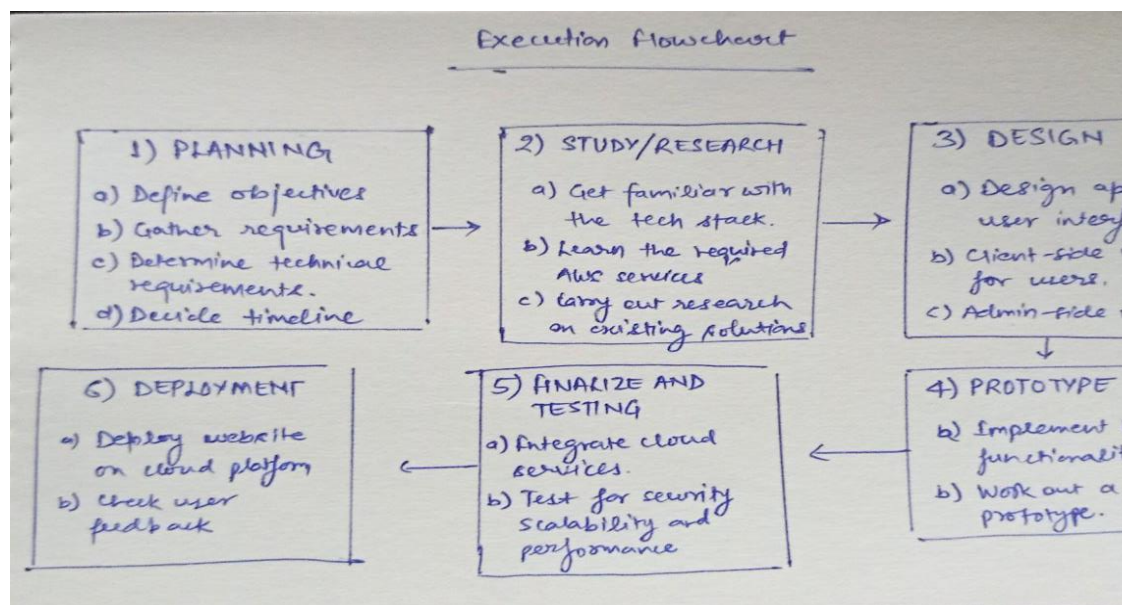 Execution flowchart
1) PLANNING
a) Define objectives
b) Gather requirements
c) Determine technical
requirements.
d) Decide timeline
2) STUDY/RESEARCH
a) Get familiar with
the tech stack.
b) Learn the required
AWS services
c) Carry out research
on existing solutions
3) DESIGN
a) Design
user
b) Client-side
for users.
c) Admin-side
4) PROTOTYPE
a) Implement
b) Work out a
prototype.
5) FINALIZE AND
TESTING
a) Integrate cloud
services.
b) Test for security
scalability and
performance
6) DEPLOYMENT
a) Deploy website
on cloud platform
b) Check user
feedback